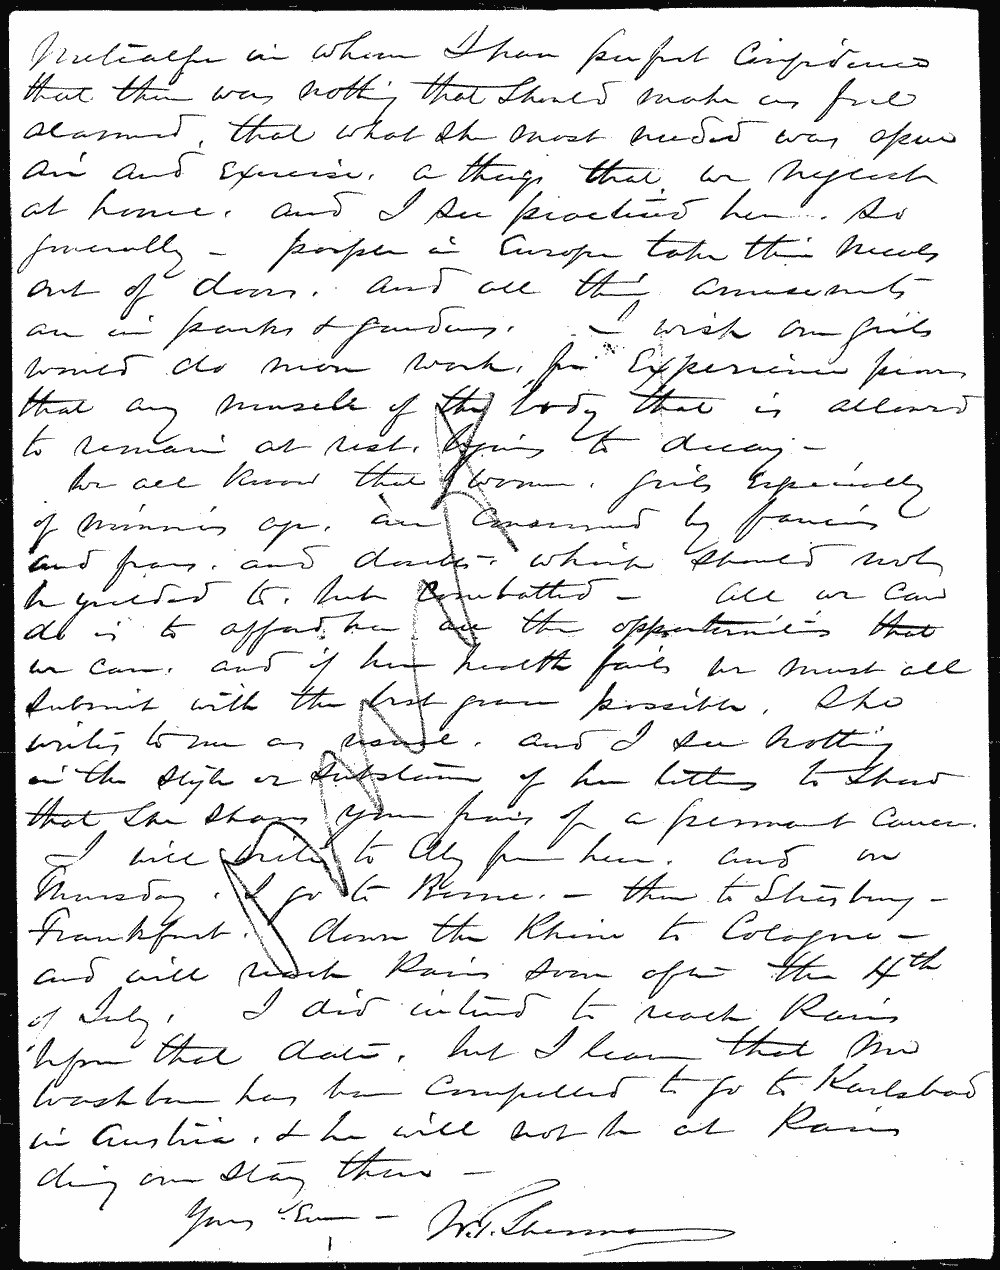 Metcalfe in whom I have perfect confidence
that there was nothing that should make us feel
alarmed, that what she most needed was open
air and exercise. a things that we neglect
at home. and I see practised here. so
generally - people in Europe take their meals
out of doors. and all their amusements
are in parks & gardens. - I wish our girls
would do more work, for Experience proves
that any muscle of the body that is allowed
to remain at rest. begins to decay -
We all know that women. girls Especially
of Minnies age. are consumed by fancies
and fears. and doubts. which should not
be yielded to. but combatted - all we can
do is to afford her all the opportunities that
we can. and if her health fails we must all
submit with the best grace possible. She
writes to me as usual. and I see nothing
in the style or substance of her letters to show
that she shares your fears of a permanent cancer.
I will write to Elly from here. and on
Thursday. I go to Berne. - then to Strasburg -
Frankfurt. down the Rhine to Cologne -
and will reach Paris soon after the 4th
of July. I did intend to reach Paris
before that date. but I learn that Mr
Washburn has been compelled to go to Karlsbad
in Austria. & he will not be at Paris
during our stay there -
Yours Ever - W. T. Sherman